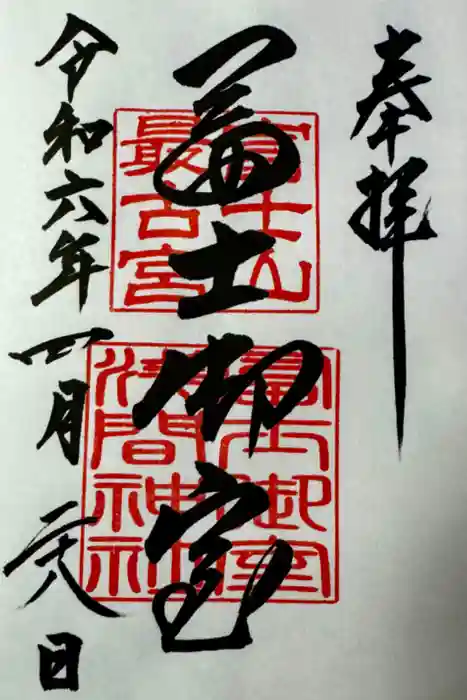 奉拝
冨士御室
富士山
最古宮
冨士御室
浅間神社
令和六年四月二十八日